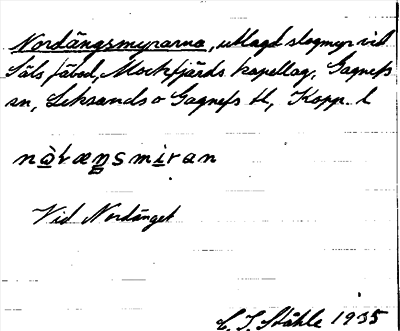 Nordängsmyrarna, utlagd slogmyr vid
Säls fäbod, Mockfjärds kapellag, Gagnefs
sn, Leksands o Gagnefs tl, Kopp. l
nɷ̀ræŋsmiran
Vid Nordänget
C. I. Ståhle 1935